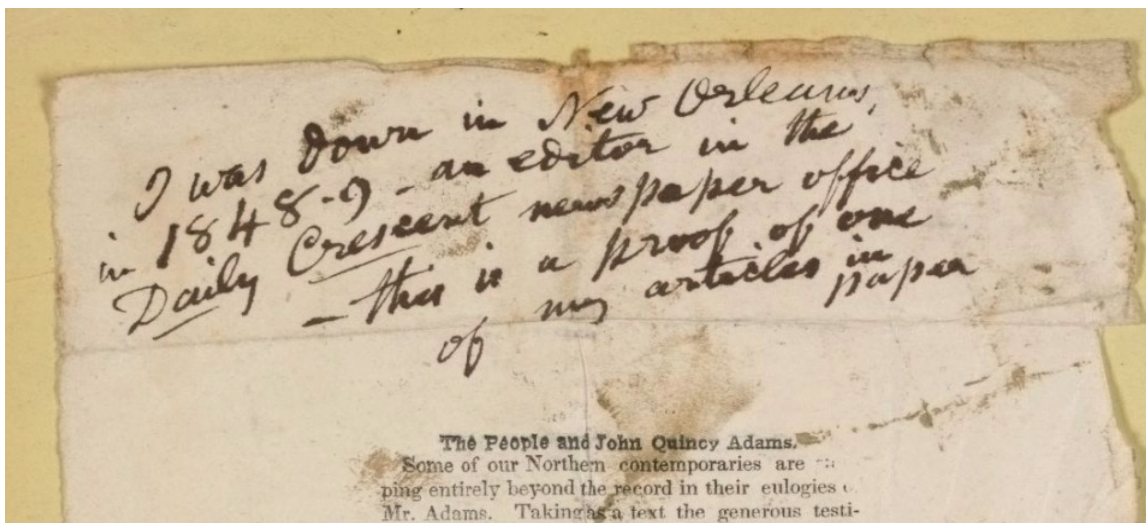 I was down in New Orleans,
in 1848-9 - an editor in the
Daily Crescent newspaper office
- this is a proof of one
of my articles in
paper
The People and John Quincy Adams.
Some of our Northern contemporaries are
ping entirely beyond the record in their eulogies
Mr. Adams. Taking as a text the generous testi-